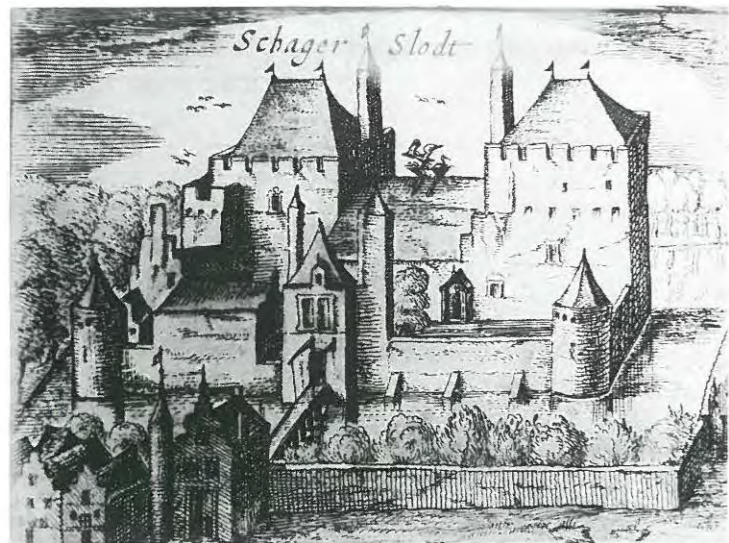 Schager Slodt